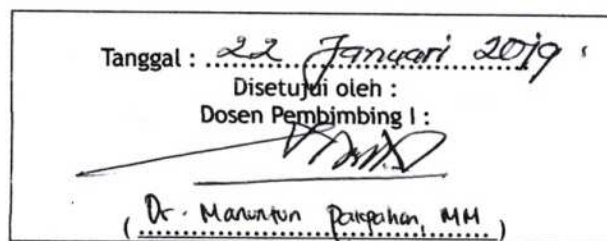 Tanggal : 22 Januari 2019
Disetujui oleh :
Dosen Pembimbing I :
( Dr. Manuntun Pakpahan, MM )